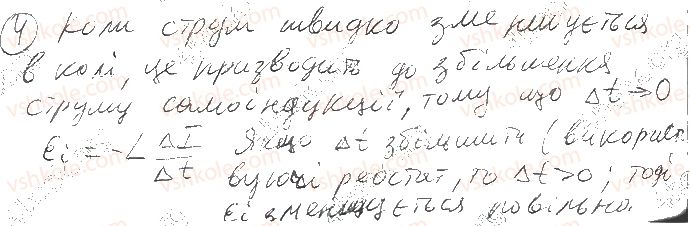 4 Коли струм швидко зменшується
в колі, це призводить до збільшення
струму самоіндукції, тому що Δt→0
εi = -L ΔI/Δt Якщо Δt збільшити (використ
вуючі реостат, то Δt>0; тоді
εi зменшується повільно.